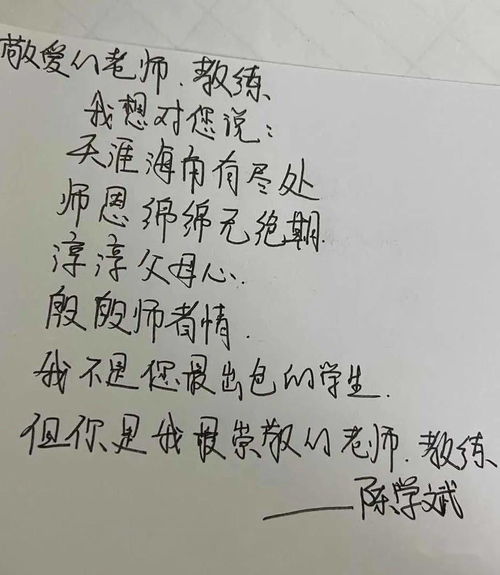 敬爱们老师.教练
我想对您说:
天涯海角有尽处
师恩绵绵无绝期.
淳淳父母心.
殷殷师者情.
我不是您最出包的学生.
但你是我最崇敬们老师.教练
——陈学斌